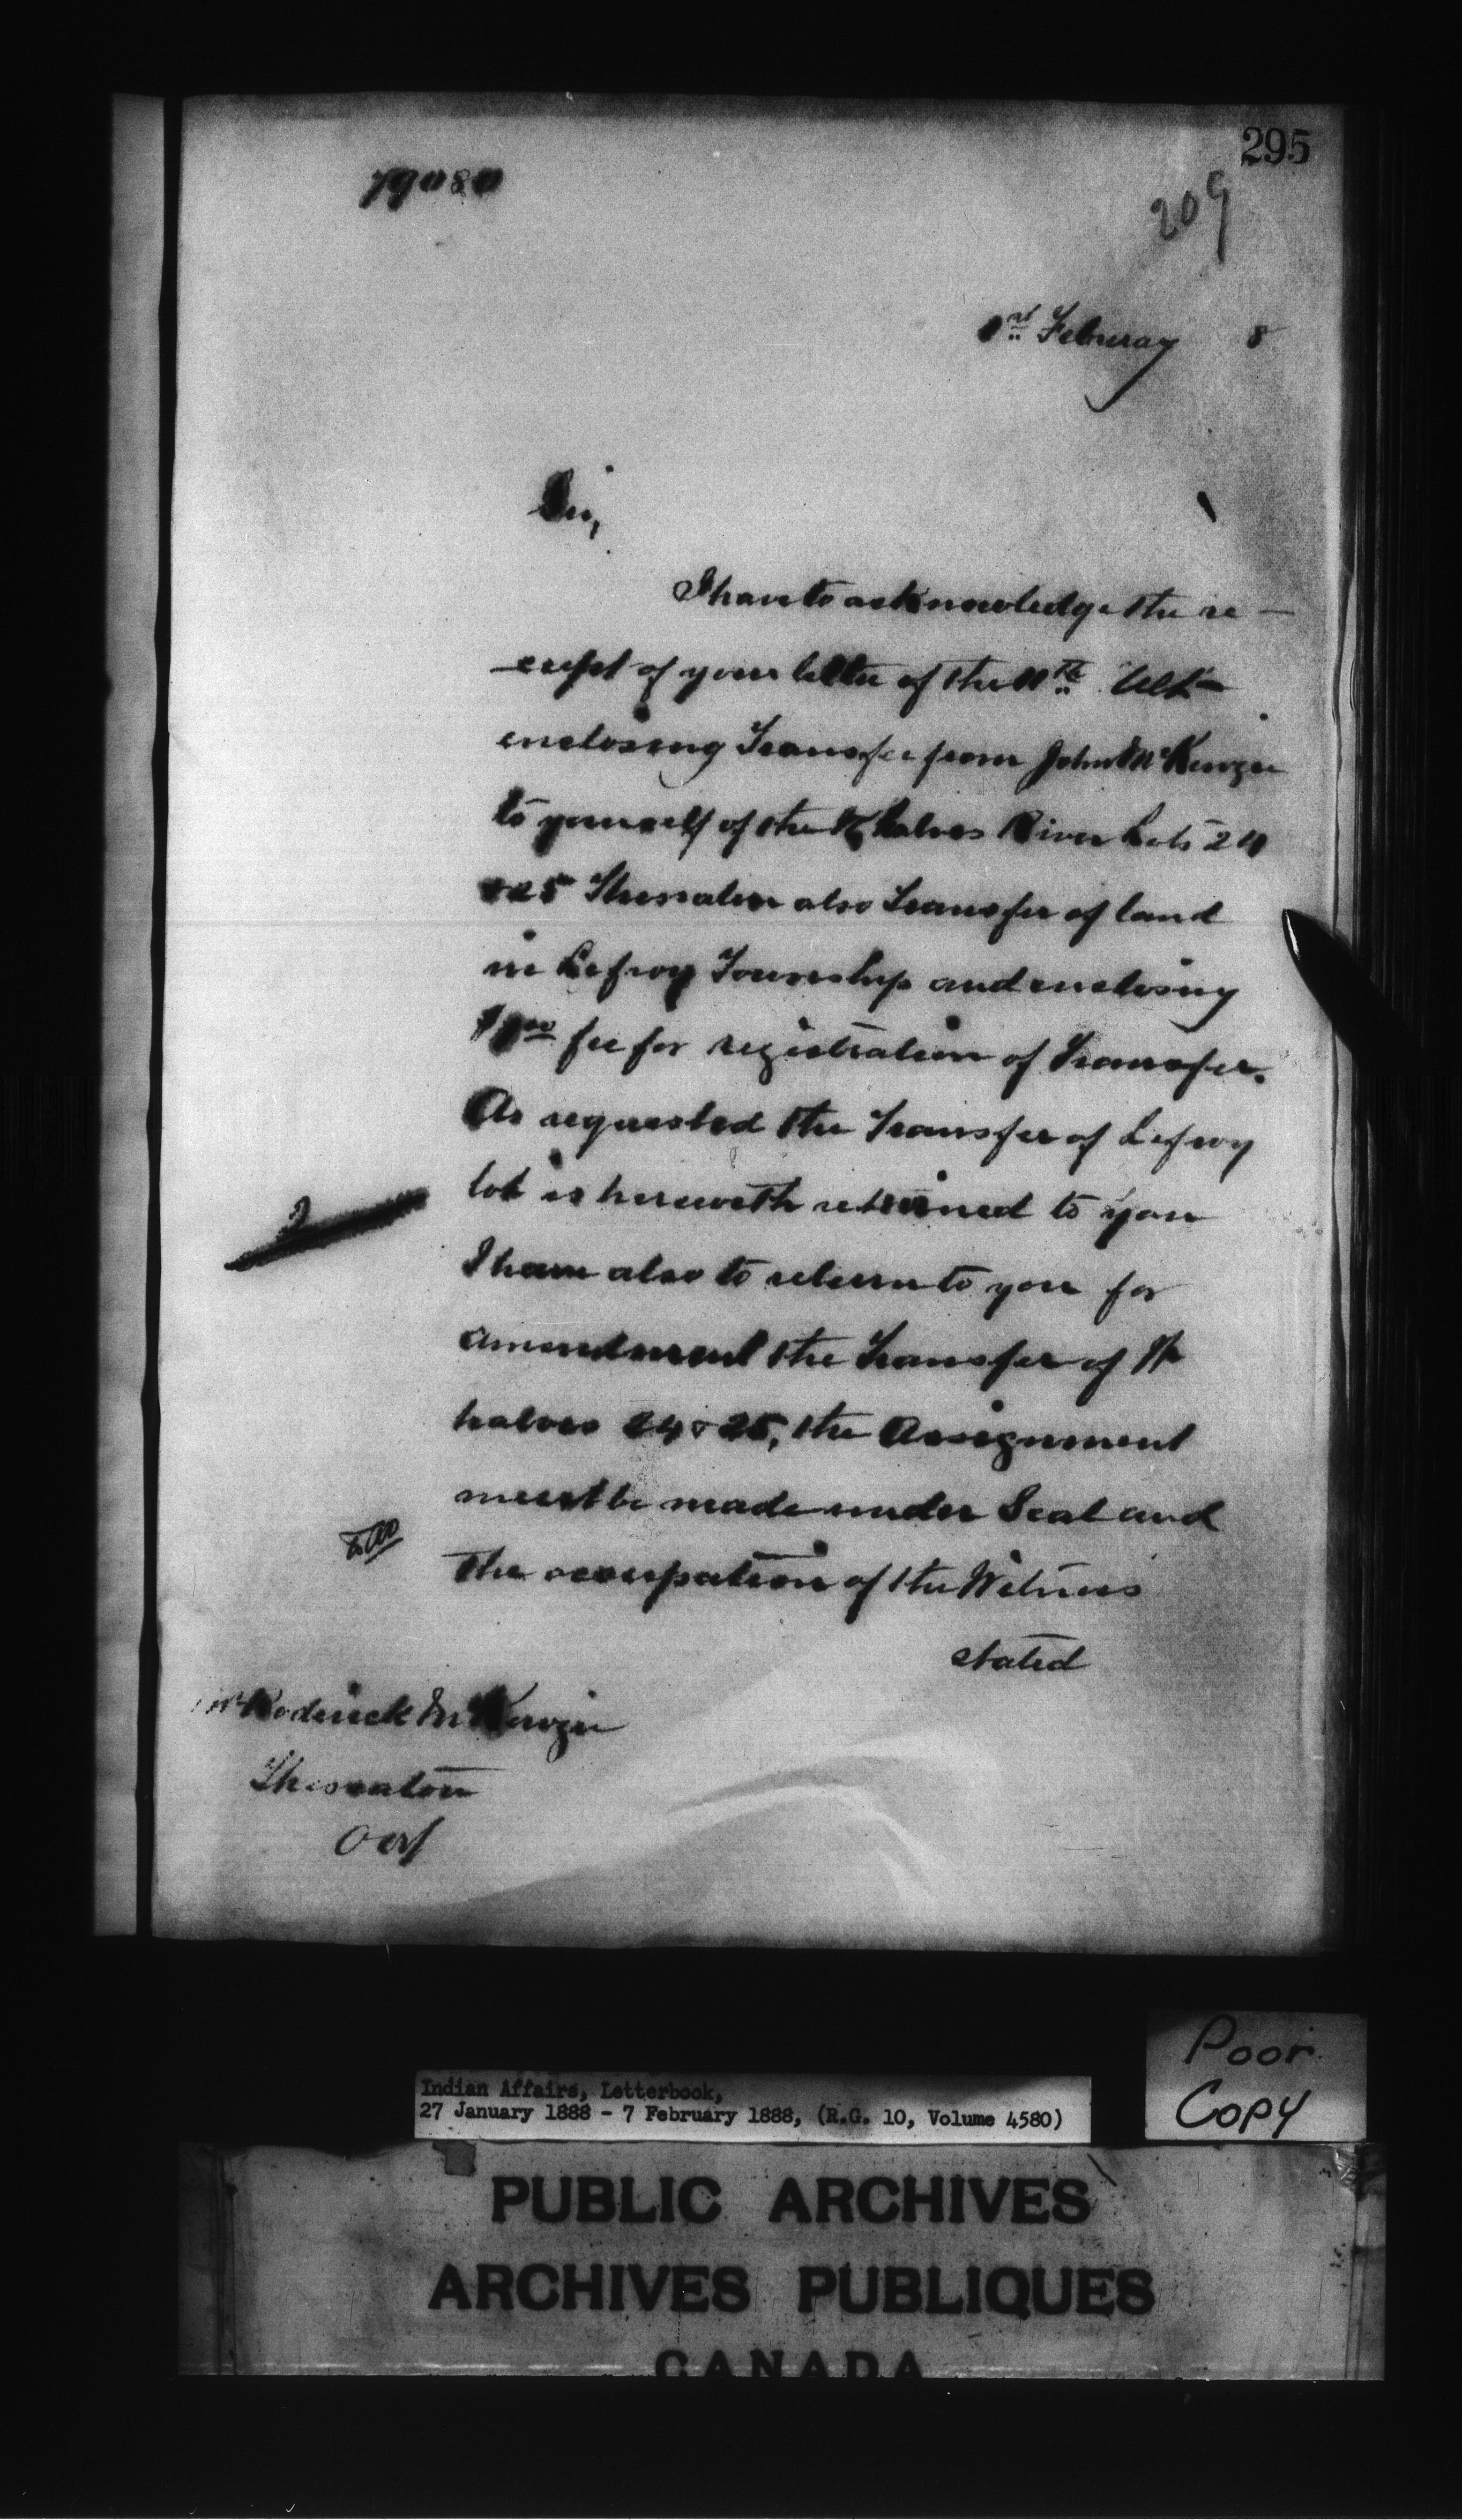 295
79080
209
1st February 8
Sir,
I have to acknowledge the re-
ceipt of your letter of the 11th Ult
enclosing Transfer from John McKenzie
to yourself of the halves River Lots 24
& 25 Thessalon also Transfer of land
in Lefroy Township and enclosing
fee for registration of Transfer.
As requested the Transfer of Lefroy
lot is herewith returned to you
I have also to return to you for
amendment the Transfer of
halves 24 & 25, the Assignment
must be made under Seal and
the occupation of the Witness
stated
Mr Roderick McKenzie
Thessalon
Ont
Poor
Copy
Indian Affairs, Letterbook,
27 January 1888 - 7 February 1888, (R.G. 10, Volume 4580)
PUBLIC ARCHIVES
ARCHIVES PUBLIQUES
CANADA